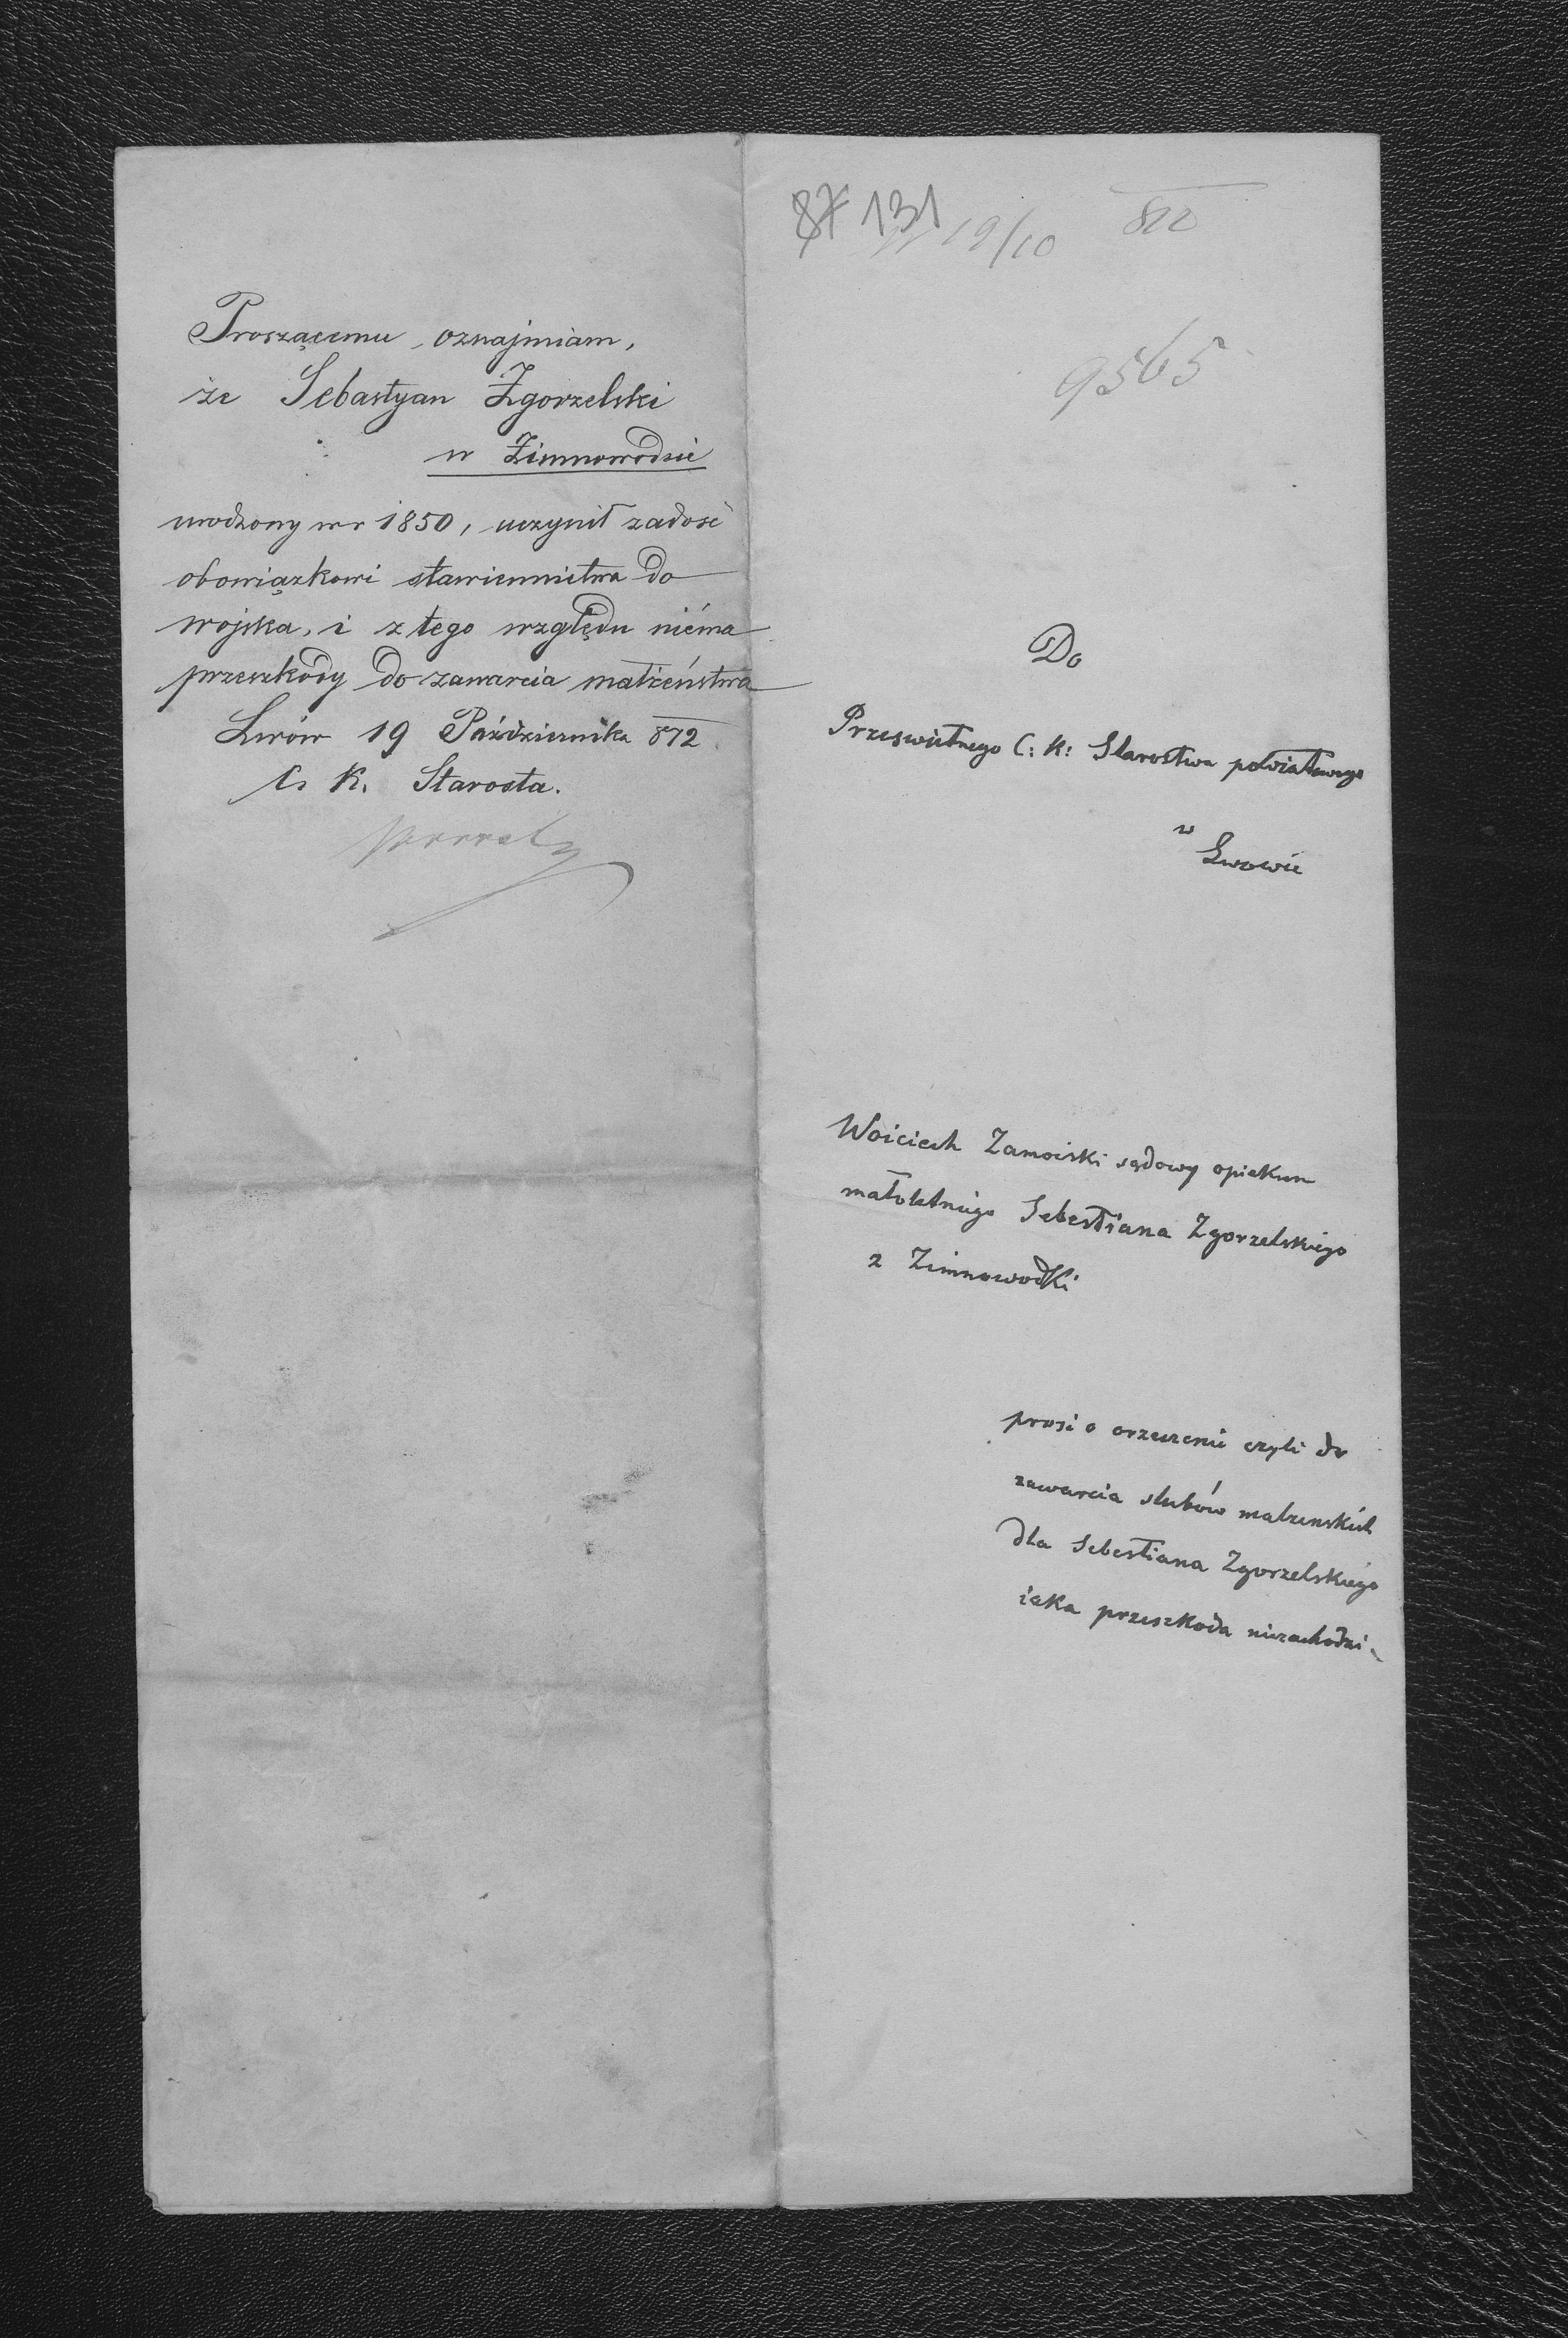 Proszącemu oznajmiam,
że Sebastyan Zgorzelski
w Zimnowodzie
urodzony w r 1850, uczynił zadość
obowiązkowi stawiennictwa do
wojska, i z tego względu niéma
przeszkody do zawarcia małżeństwa
Lwów 19 Października 872
C. K. Starosta.
131 19/10 872
9565
Do
Przeswietnego C: K: Starostwa powiatowego
w
Lwowie
Woiciech Zamoiski sądowy opiekun
małoletniego Sebestiana Zgorzelskiego
z Zimnowodki
prosi o orzeczenie czyli do
zawarcia slubów malzenskich
dla Sebestiana Zgorzelskiego
iaka przeszkoda niezachodzi